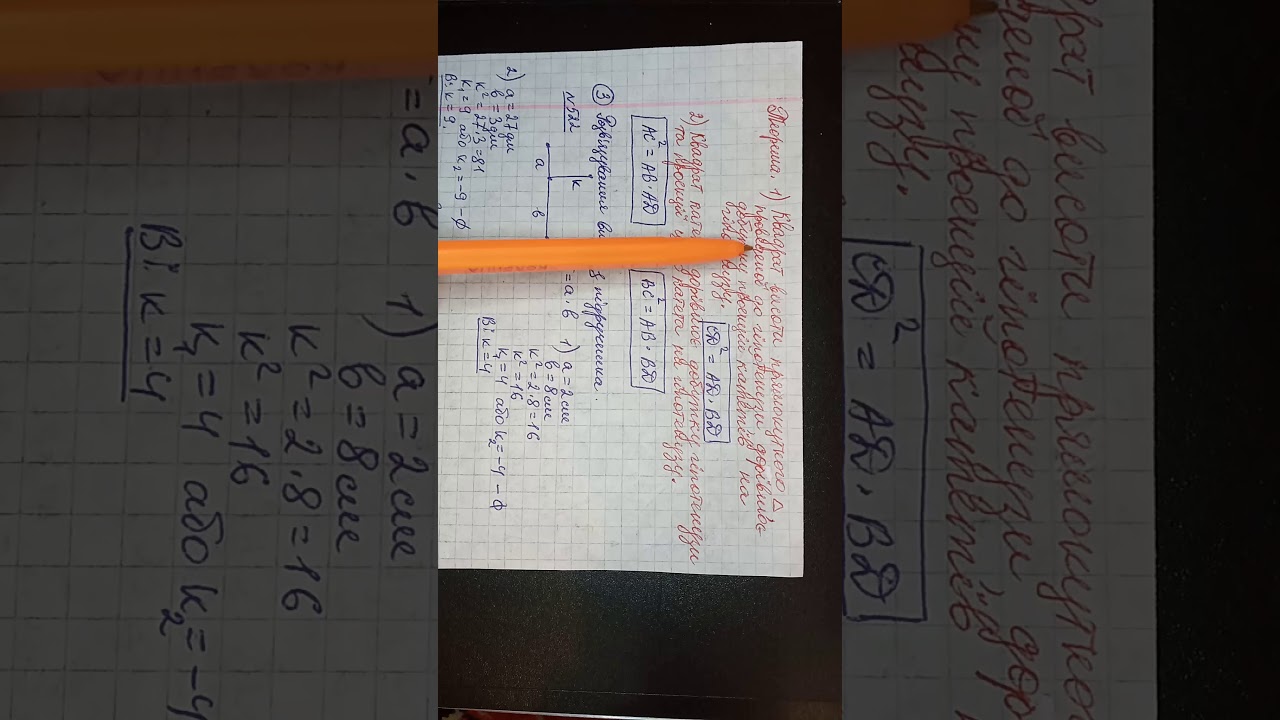 Теорема. 1) Квадрат висоти прямокутного △
проведеної до гіпотенузи дорівнює
добутку проекцій катетів на
CD² = AD · BD
2) Квадрат дорівнює добутку гіпотенузи
та проекції катета на гіпотенузу.
AC² = AB · AD
BC² = AB · BD
③ з підручника.
№522
a
k
b
= a · b
1) a = 2см
b = 8см
k² = 2 · 8 = 16
k² = 16
k₁ = 4 або k₂ = -4 - ∅
Ві: k = 4
2) a = 27дм
b = 3дм
k² = 27 · 3 = 81
k₁ = 9 або k₂ = -9 - ∅
Ві: k = 9.